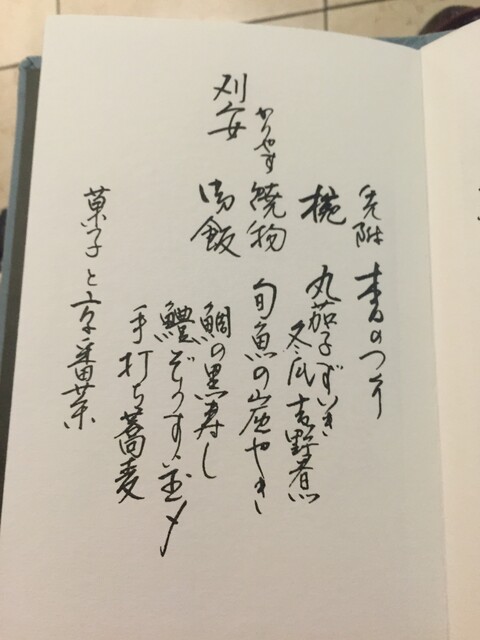 刈安
かりやす
先附 青のつり
椀 丸茄子ずいき
冬瓜 吉野煮
焼物 旬魚の山庵やき
御飯 鯛の黒寿し
鱧ぞうすい 〆
手打ち蕎麦
菓子と京番茶